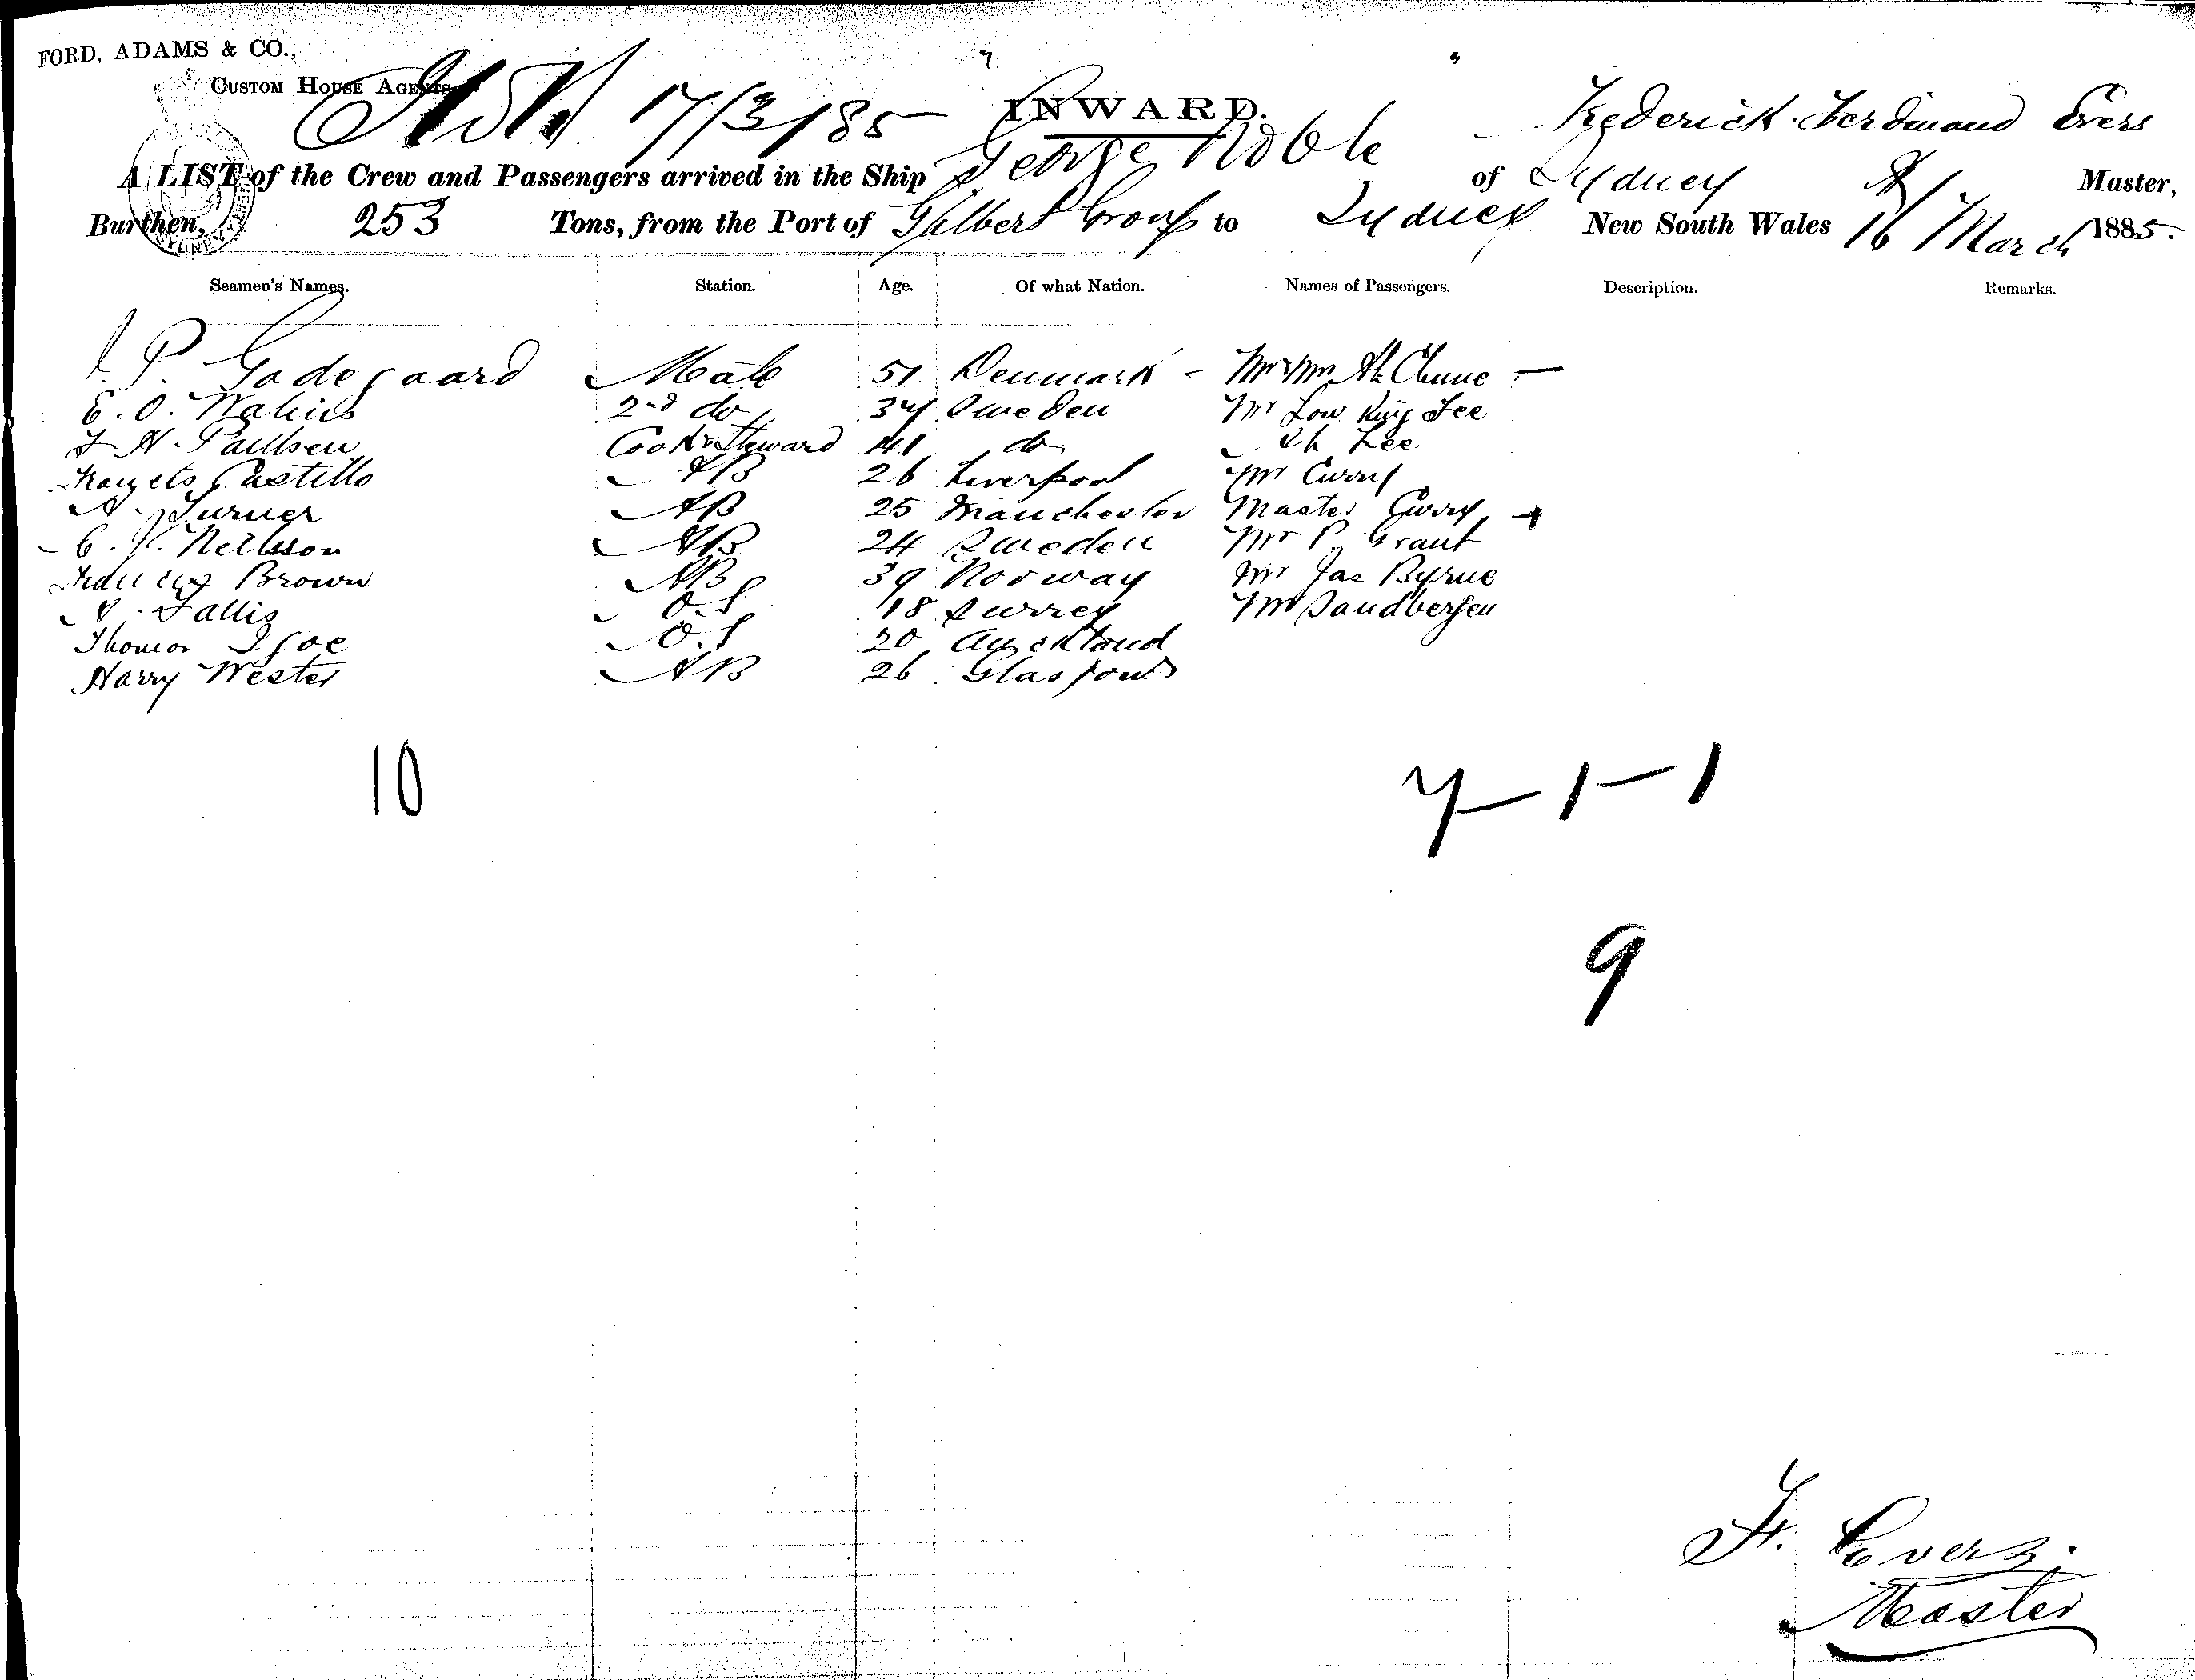 FORD, ADAMS & CO.,
CUSTOM HOUSE AGENTS
17/3/85
INWARD.
A LIST of the Crew and Passengers arrived in the Ship George Noble of Sydney Frederick Ferdinand Evers Master,
Burthen, 253 Tons, from the Port of Gilbert Group to Sydney New South Wales 16 March 1885.
Seamen's Names. Station. Age. Of what Nation. Names of Passengers. Description. Remarks.
P. Godegaard Mate 51 Denmark - Mr & Mrs Ah Chune -
E. O. Walins 2nd do 34 Sweden Mr Low King Lee
H. Paulsen Cook & Steward 41 do Ah Lee
Castillo AB 26 Liverpool Mr Curry
A. Turner AB 25 Manchester Master Curry
C. Neilsson AB 24 Sweden Mr P. Grant
Brown AB 39 Norway Mr Jas Byrne
Fallis O.S 18 Surrey Mr Sandbergen
Thomas O.S 20 Auckland
Harry Wester AB 26 Glasgow
10 7-1-1
9
F. Evers.
Master